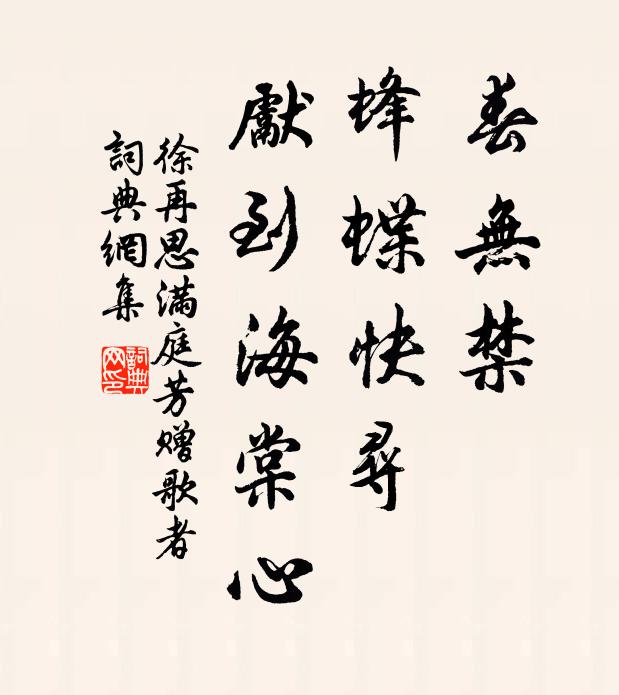 春無禁
蜂蝶快尋
獻到海棠心
徐再思滿庭芳贈歌者
詞典網集
詞典
网印